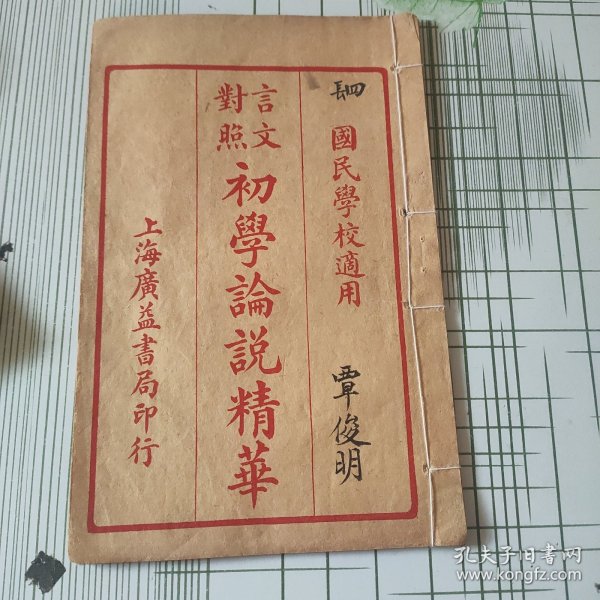 國民學校適用
覃俊明
言文
對照
初學論說精華
上海廣益書局印行
孔夫子旧书网
www.kongfz.com